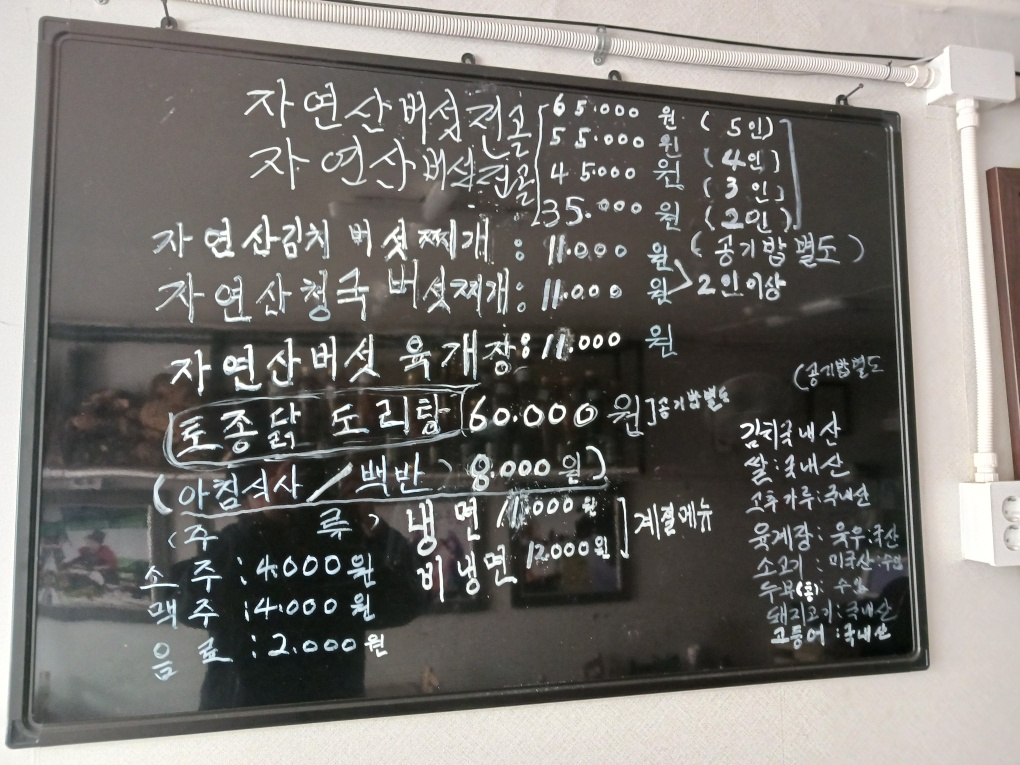 자연산버섯전골 65.000 원 (5인)
자연산버섯전골 55.000 원 (4인)
45.000 원 (3인)
35.000 원 (2인)
자연산김치 버섯찌개 : 11.000 원 (공기밥별도)
자연산청국 버섯찌개 : 11.000 원 2인이상
자연산버섯 육개장 : 11.000 원
토종닭 도리탕 [60.000 원] 공기밥별도
(아침식사 / 백반) 8.000 원)
<주 류> 냉면 11.000 원 ] 계절메뉴
소주 : 4.000 원 비냉면 12.000 원
맥주 : 4.000 원
음료 : 2.000 원
(공기밥별도
김치국내산
쌀 : 국내산
고추가루 : 국내산
육계장 : 육우 : 국산
소고기 : 미국산 : 수입
두부(콩) : 수입
돼지고기 : 국내산
고등어 : 국내산